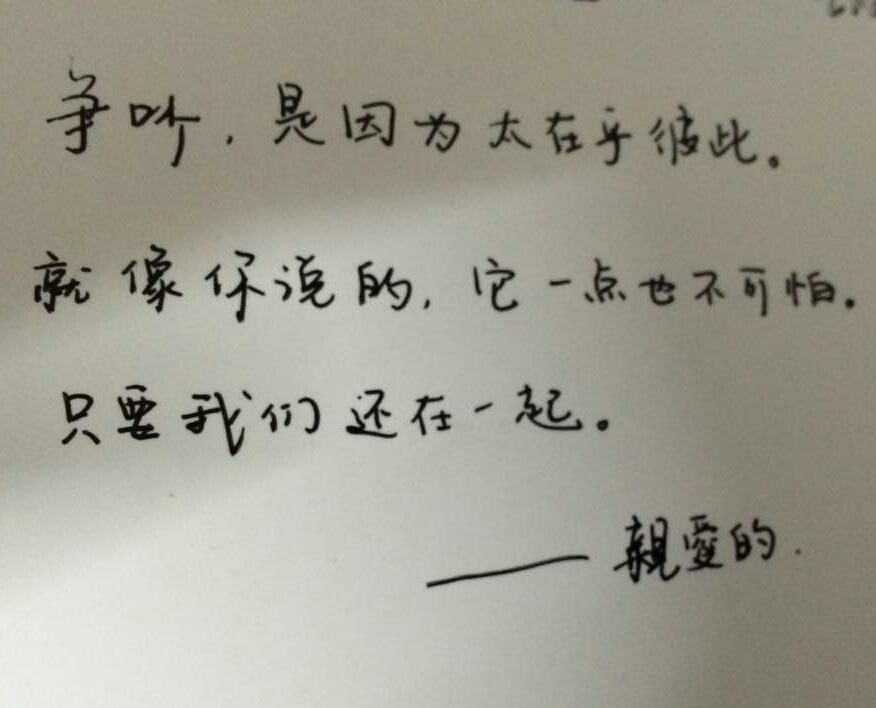 争吵，是因为太在乎彼此。
就像你说的，它一点也不可怕。
只要我们还在一起。
——親愛的.